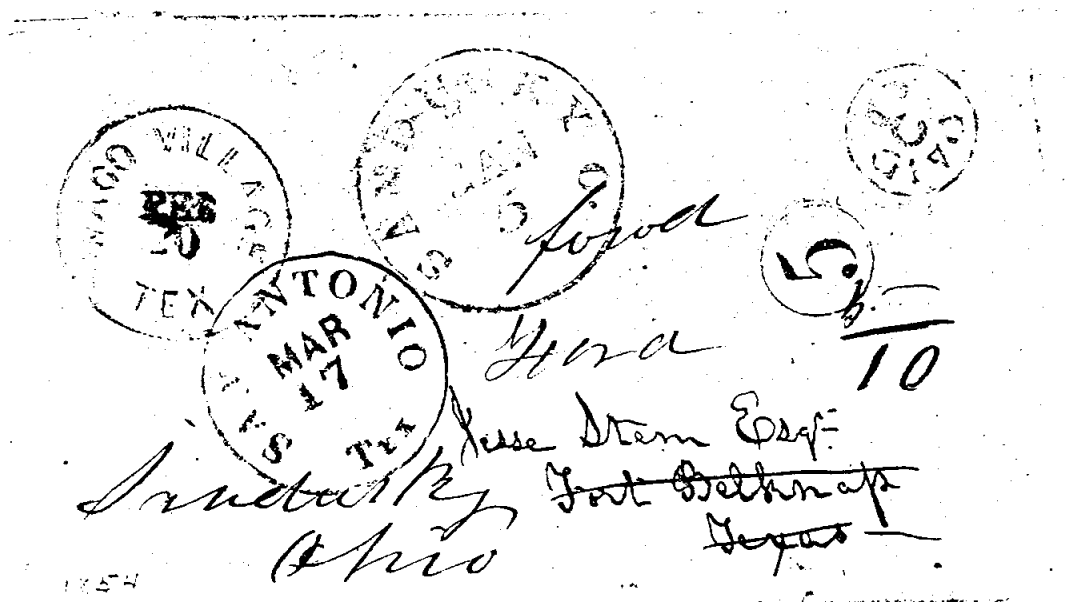 WACO VILLAGE
FEB
20
TEX
SANDUSKY O.
JAN
5
PAID
3
CTS
5
SAN ANTONIO
MAR
17
Tex
forwd
Ford
10
Jesse Stem Esqr
Fort Belknap
Texas
Sandusky
Ohio
1854